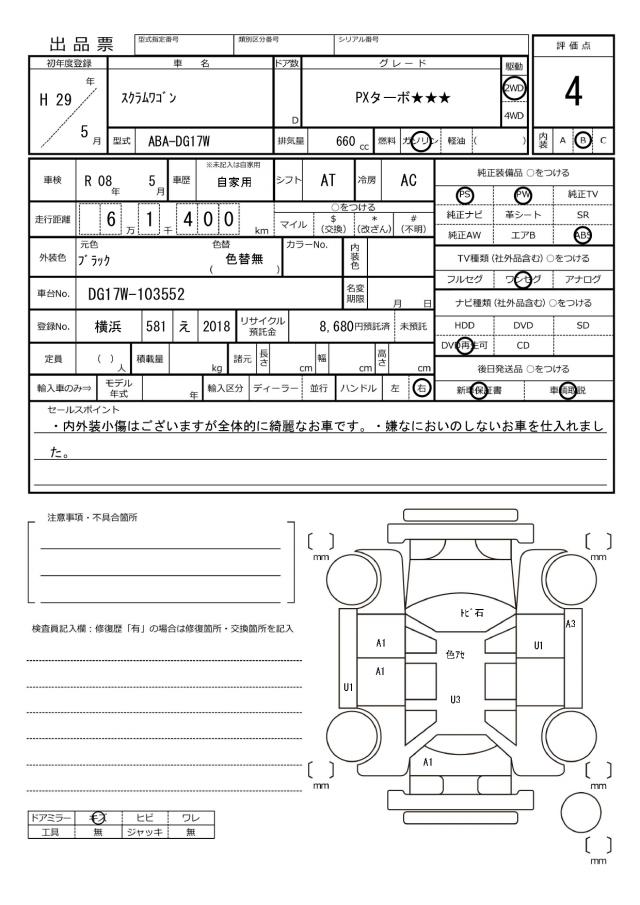 出品票
型式指定番号 類別区分番号 シリアル番号
評価点
初年度登録 車名 ドア数 グレード 駆動
H 29 年 ｽｸﾗﾑﾜｺﾞﾝ D PXターボ★★★ 2WD 4
5 月 4WD
型式 ABA-DG17W 排気量 660 cc 燃料 ガソリン 軽油 ( ) 内装 A B C
車検 R 08 年 5 月 車歴 ※未記入は自家用 自家用 シフト AT 冷房 AC
純正装備品 ○をつける
PS PW 純正TV
走行距離 6 万 1 千 4 0 0 km ○をつける
マイル $ (交換) * (改ざん) # (不明)
純正ナビ 革シート SR
純正AW エアB ABS
外装色 元色 ﾌﾞﾗｯｸ 色替 ( 色替無 ) カラーNo. 内装色
TV種類(社外品含む)○をつける
フルセグ ワンセグ アナログ
車台No. DG17W-103552 名変期限 月 日
ナビ種類(社外品含む)○をつける
登録No. 横浜 581 え 2018 リサイクル預託金 8,680円預託済 未預託
HDD DVD SD
DVD再生可 CD
定員 ( ) 人 積載量 kg 諸元 長さ cm 幅 cm 高さ cm
後日発送品 ○をつける
輸入車のみ⇒ モデル年式 年 輸入区分 ディーラー 並行 ハンドル 左 右
新車保証書 車輌取説
セールスポイント
・内外装小傷はございますが全体的に綺麗なお車です。・嫌なにおいのしないお車を仕入れまし
た。
注意事項・不具合箇所
mm mm
検査員記入欄：修復歴「有」の場合は修復箇所・交換箇所を記入
ﾄﾋﾞ石
A3
A1 U1
色ｱｾ
A1
U1 U3
A1
mm mm
ドアミラー キズ ヒビ ワレ
工具 無 ジャッキ 無
mm